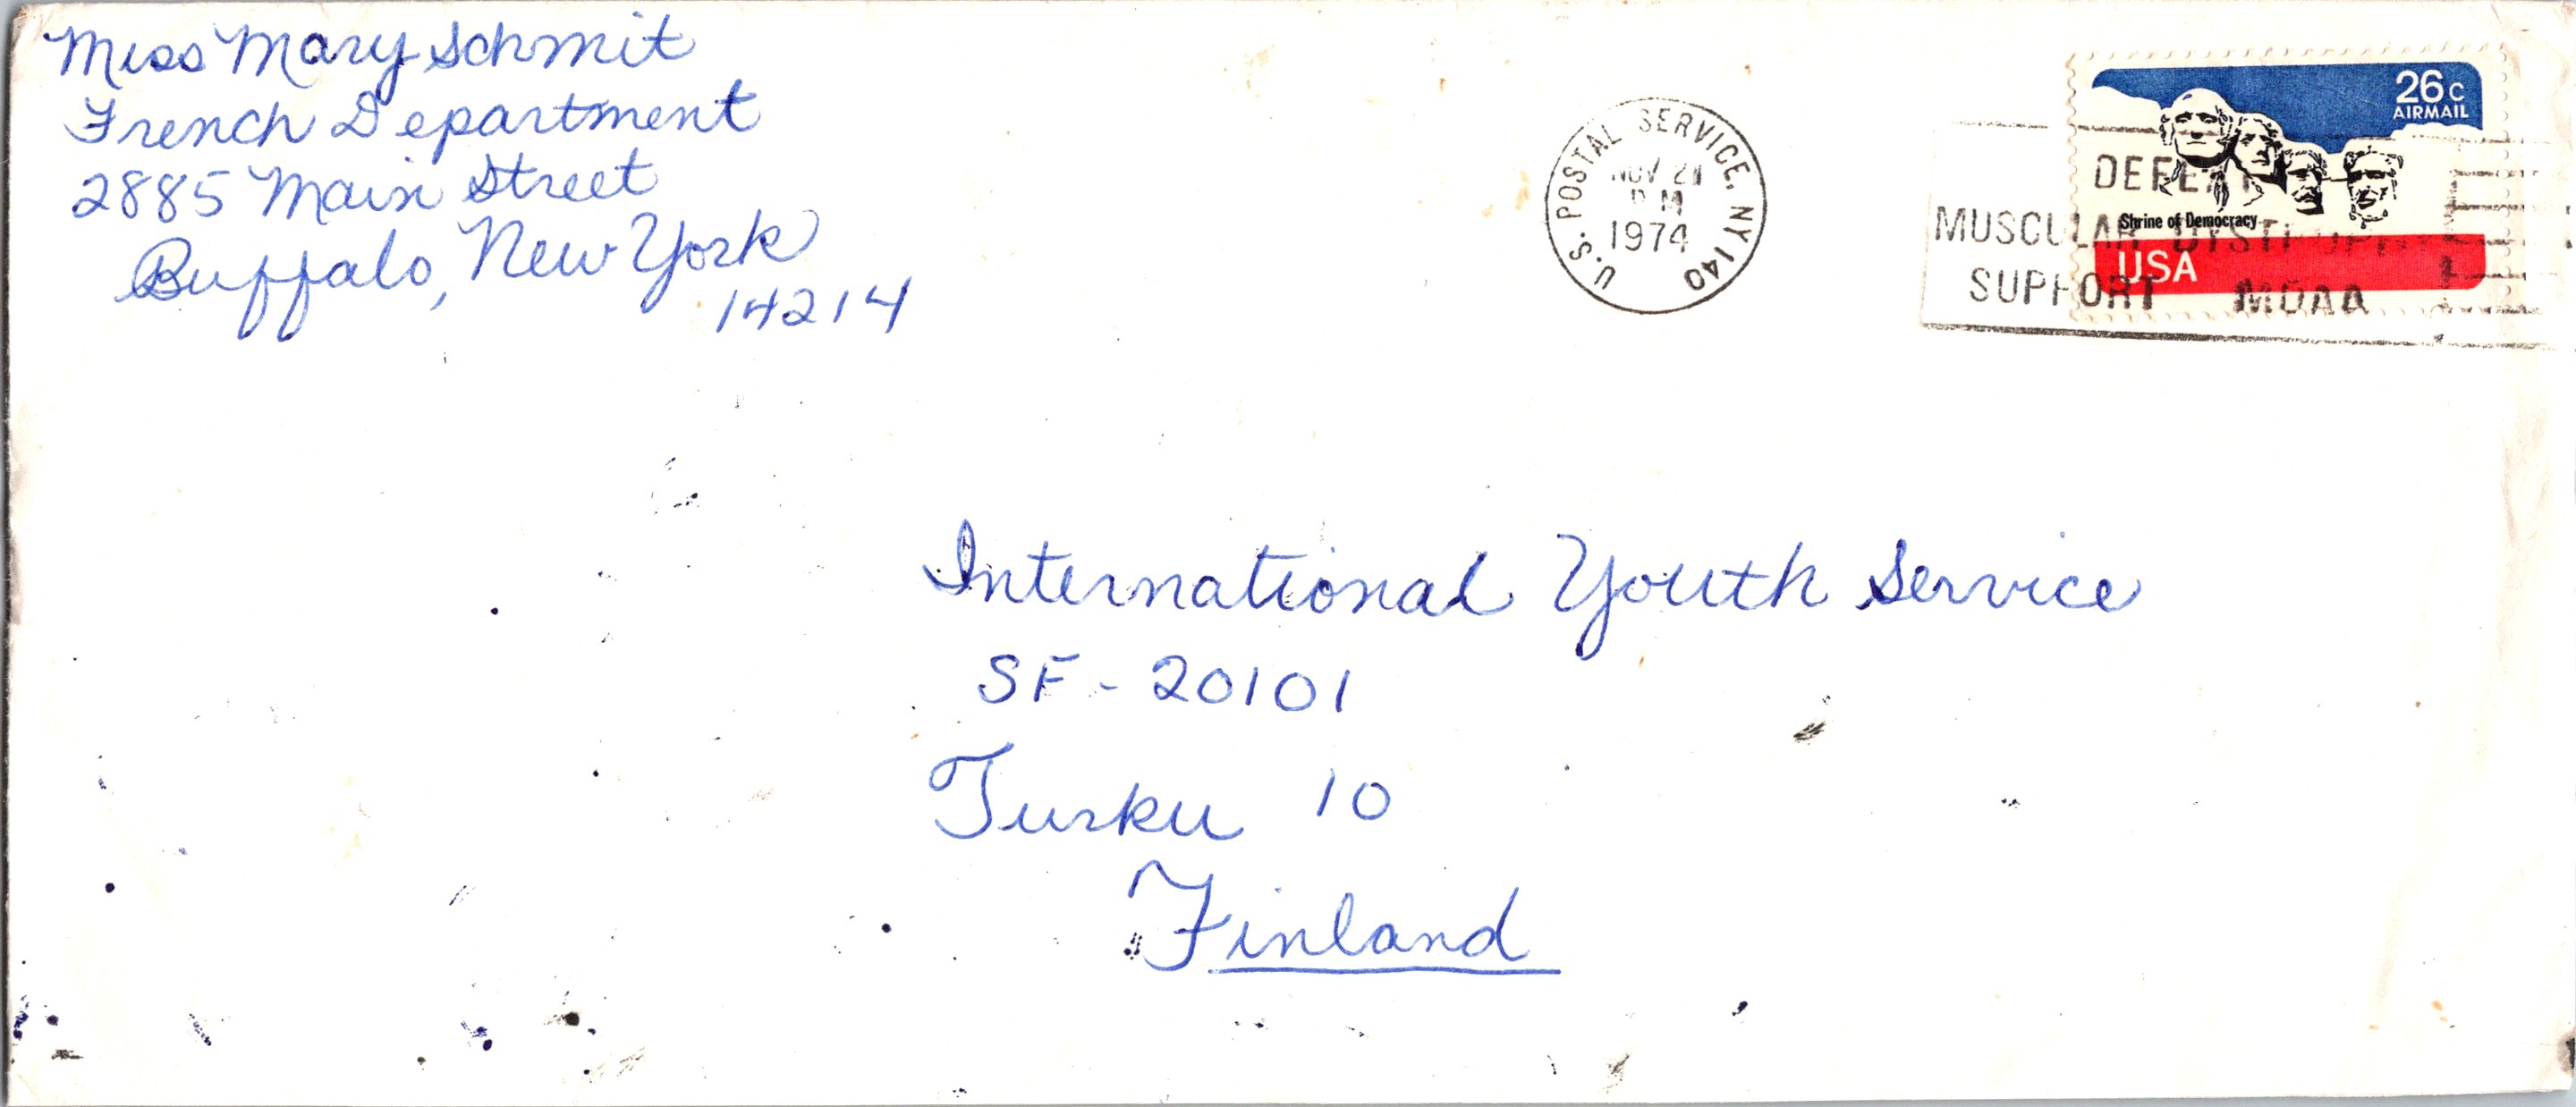 Miss Mary Schmit
French Department
2885 Main Street
Buffalo, New York
14214
U.S. POSTAL SERVICE, NY 140
NOV 21
PM
1974
26c
AIRMAIL
Shrine of Democracy
USA
DEFEAT
MUSCULAR DYSTROPHY
SUPPORT MDAA
International Youth Service
SF - 20101
Turku 10
Finland